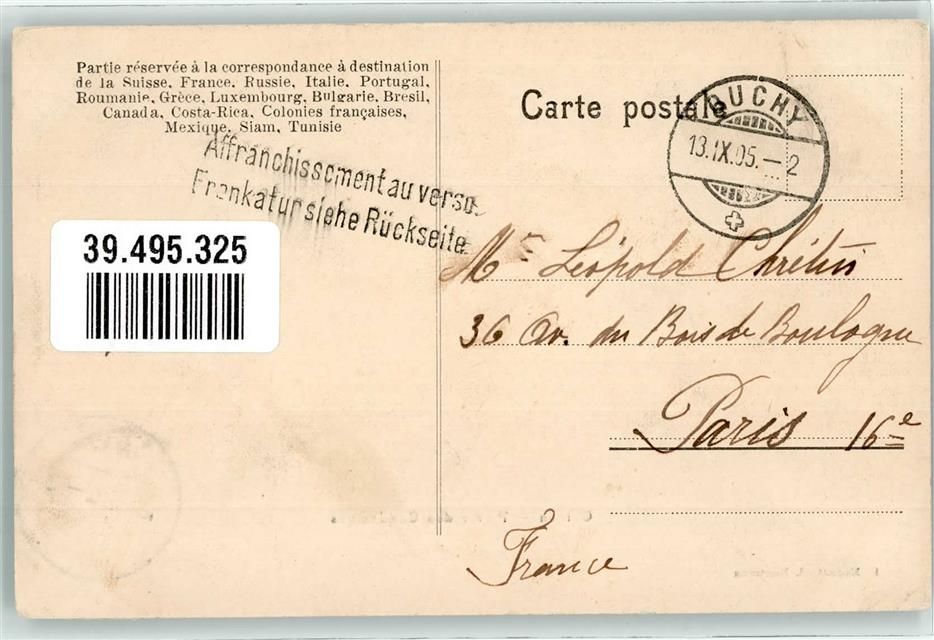 Partie réservée à la correspondance à destination
de la Suisse, France, Russie, Italie, Portugal,
Roumanie, Grèce, Luxembourg, Bulgarie, Bresil,
Canada, Costa-Rica, Colonies françaises,
Mexique, Siam, Tunisie
Carte postale
OUCHY
13.IX.05.–2
Affranchissement au verso
Frankatur siehe Rückseite
39.495.325
Mr Léopold Chrétien
36 Av. du Bois de Boulogne
Paris 16e
France